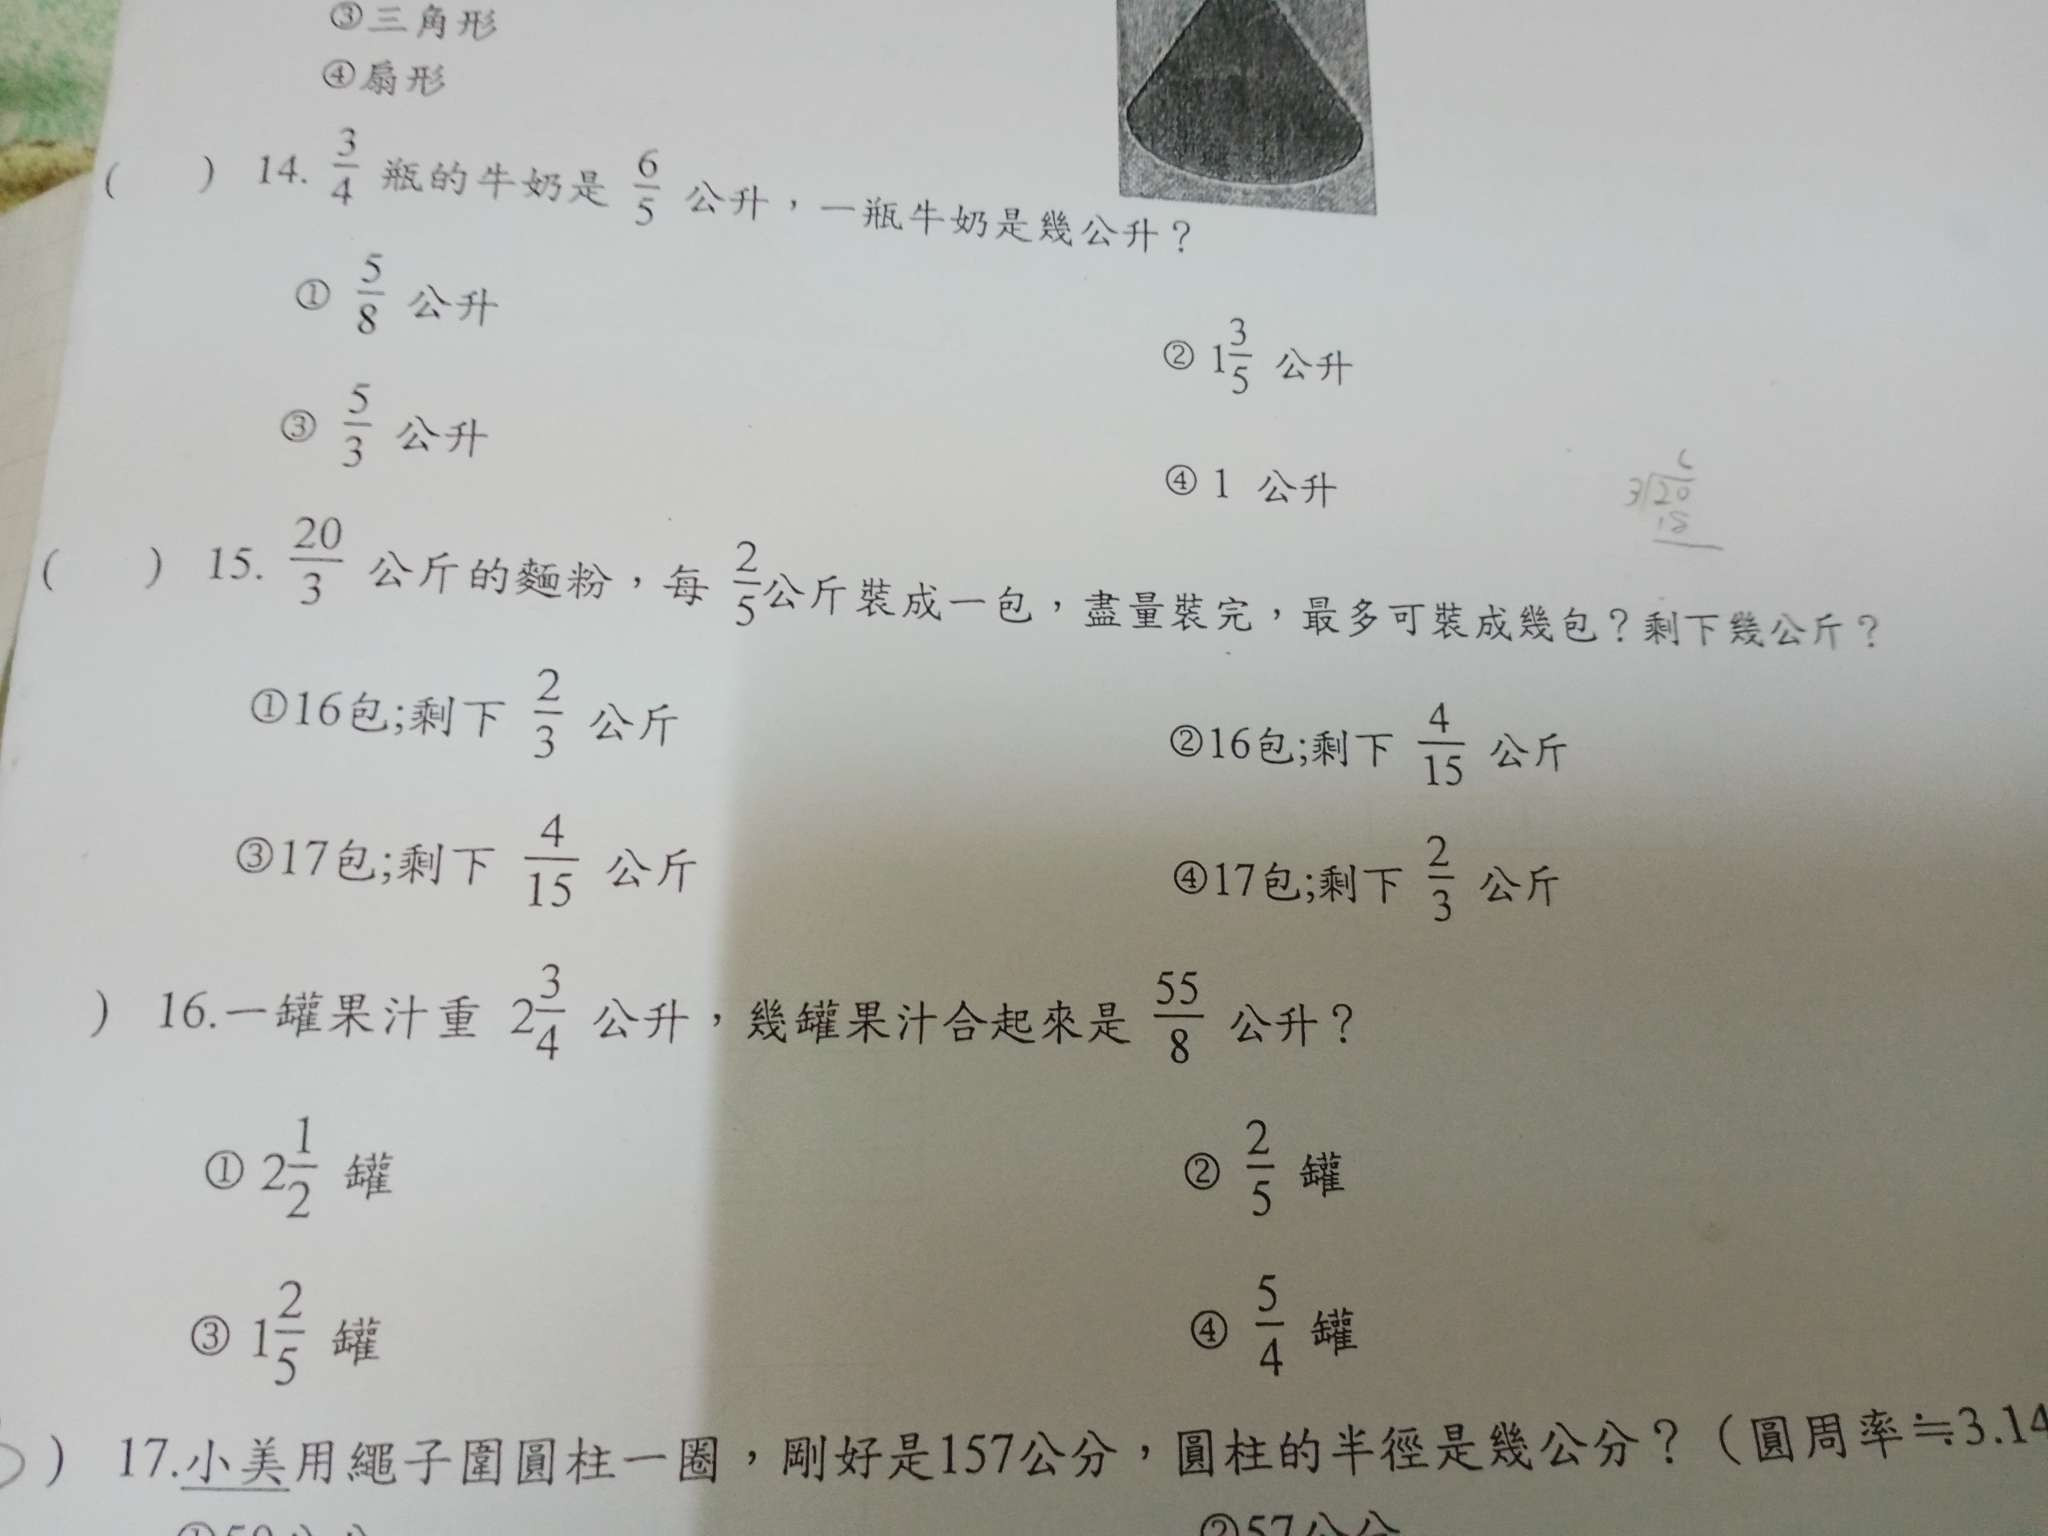 ③三角形
④扇形
(　) 14. 3/4 瓶的牛奶是 6/5 公升，一瓶牛奶是幾公升？
① 5/8 公升
② 1 3/5 公升
③ 5/3 公升
④ 1 公升
3 20
18
(　) 15. 20/3 公斤的麵粉，每 2/5公斤裝成一包，盡量裝完，最多可裝成幾包？剩下幾公斤？
①16包;剩下 2/3 公斤
②16包;剩下 4/15 公斤
③17包;剩下 4/15 公斤
④17包;剩下 2/3 公斤
) 16.一罐果汁重 2 3/4 公升，幾罐果汁合起來是 55/8 公升？
① 2 1/2 罐
② 2/5 罐
③ 1 2/5 罐
④ 5/4 罐
) 17.小美用繩子圍圓柱一圈，剛好是157公分，圓柱的半徑是幾公分？（圓周率≒3.14
②57公分